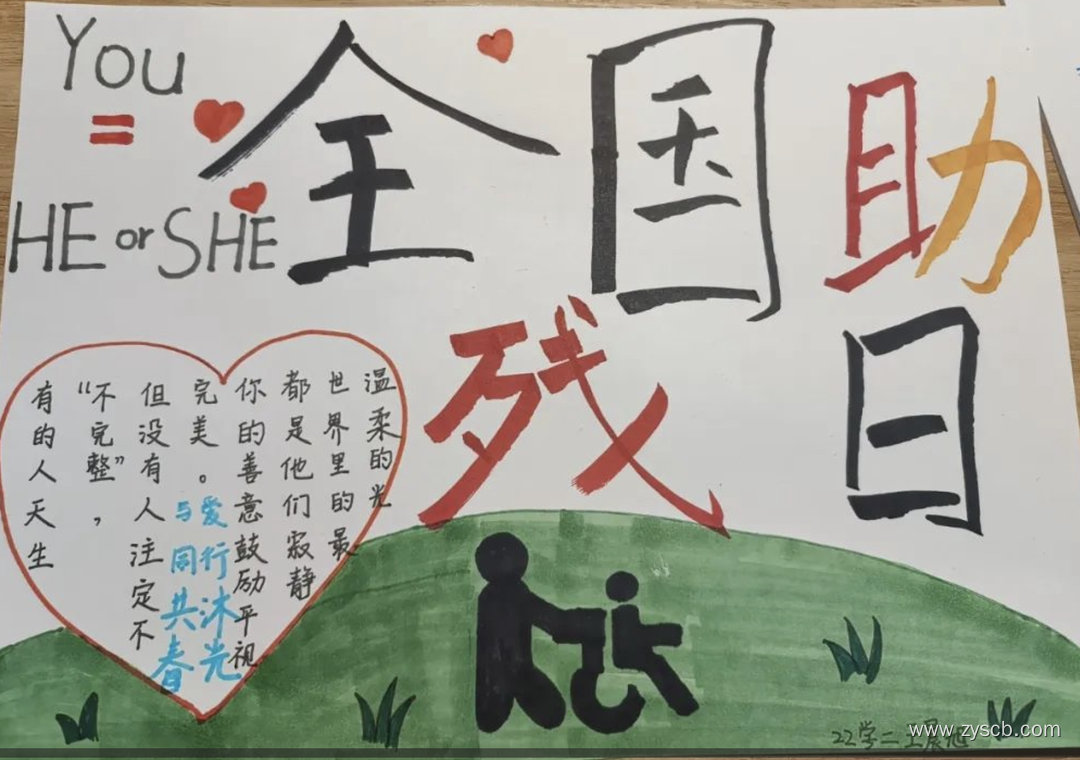 You
=
HE or SHE
全国助
残日
有的人天生
“不完整”，
但没有人注定不
完美。
你的善意鼓励平视
都是他们寂静
世界里的最
温柔的光
与爱
同行
共沐
春光
22学二
www.zyscb.com